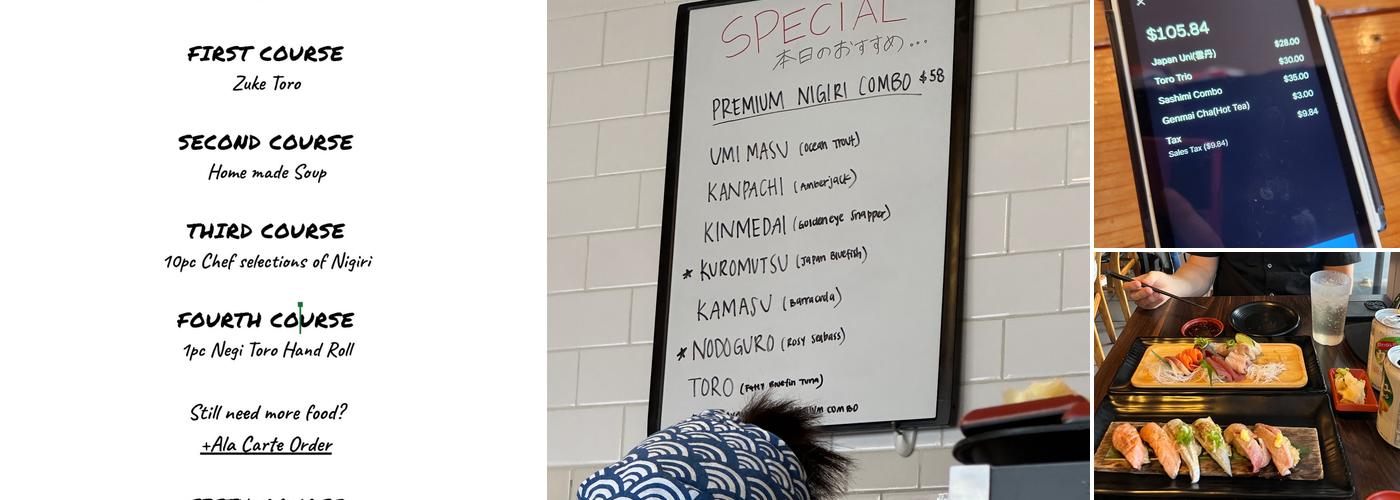 FIRST COURSE
Zuke Toro
SECOND COURSE
Home made Soup
THIRD COURSE
10pc Chef selections of Nigiri
FOURTH COURSE
1pc Negi Toro Hand Roll
Still need more food?
+Ala Carte Order
SPECIAL
本日のおすすめ...
PREMIUM NIGIRI COMBO $58
UMI MASU (Ocean Trout)
KANPACHI (Amberjack)
KINMEDAI (Goldeneye Snapper)
* KUROMUTSU (Japan Bluefish)
KAMASU (Barracuda)
* NODOGURO (Rosy Seabass)
TORO (Fatty Bluefin Tuna)
COMBO
$105.84
Japan Uni(雲丹) $28.00
Toro Trio $30.00
Sashimi Combo $35.00
Genmai Cha(Hot Tea) $3.00
Tax $9.84
Sales Tax ($9.84)